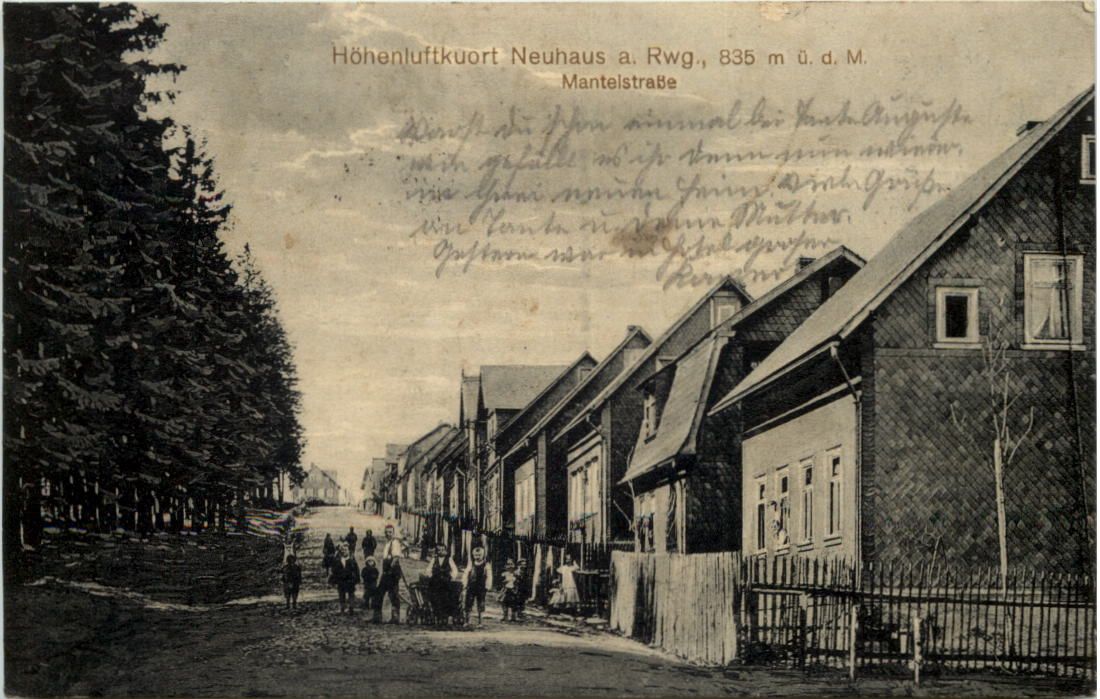 Höhenluftkuort Neuhaus a. Rwg., 835 m ü. d. M.
Mantelstraße
Warst du schon einmal bei Tante Auguste
wie gefällt es ihr denn nun wieder
neuen Heim Viele Grüße
an Tante u. deine Mutter.
Gestern war großer